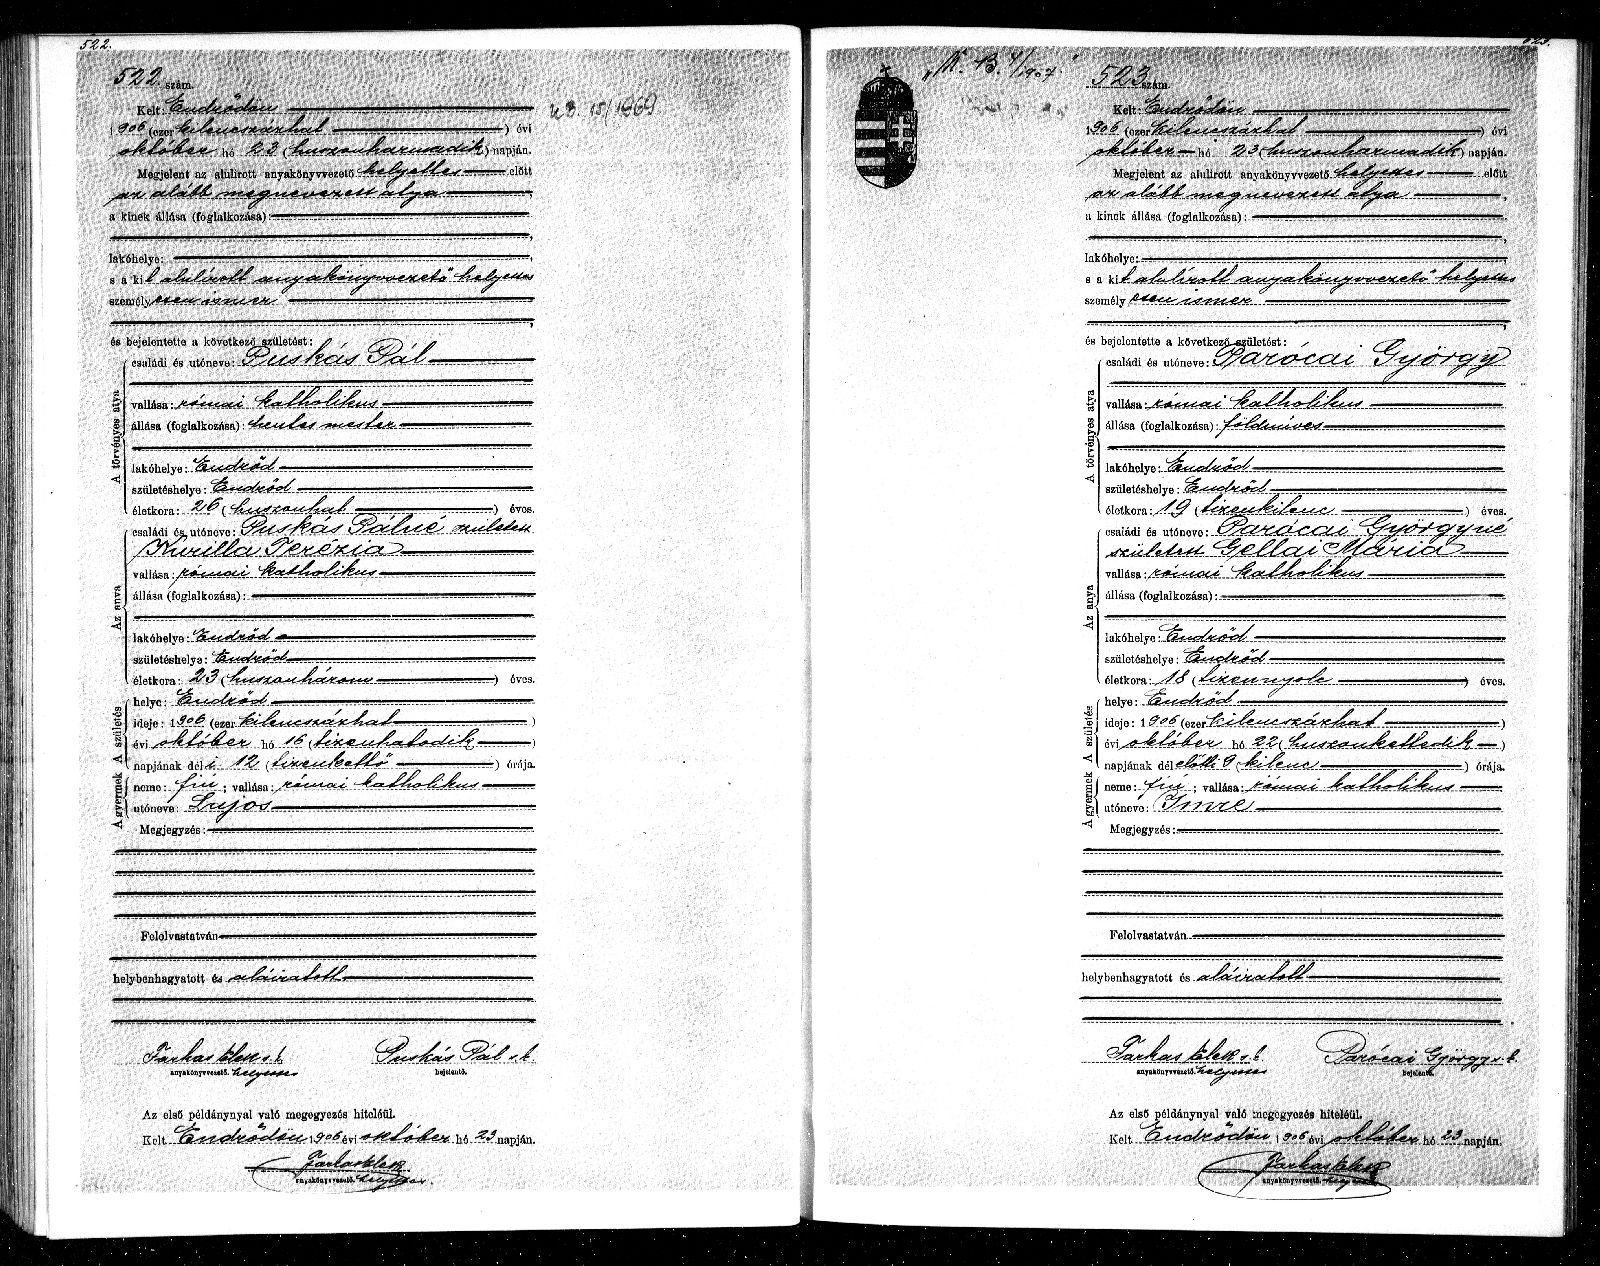 522.
522 szám.
Kelt Endrődön
1906 (ezer kilencszázhat) évi
október hó 23 (huszonharmadik) napján.
Megjelent az alulirott anyakönyvvezető helyettes előtt
az alább megnevezett atya
a kinek állása (foglalkozása):
lakóhelye:
s a kit alulírott anyakönyvvezető helyettes
személyesen ismer
és bejelentette a következő születést:
A törvényes atya
családi és utóneve: Puskás Pál
vallása: római katholikus
állása (foglalkozása): hentes mester
lakóhelye: Endrőd
születéshelye: Endrőd
életkora: 26 (huszonhat) éves.
Az anya
családi és utóneve: Puskás Pálné született
Kurilla Terézia
vallása: római katholikus
állása (foglalkozása):
lakóhelye: Endrőd
születéshelye: Endrőd
életkora: 23 (huszonhárom) éves.
A születés
helye: Endrőd
ideje: 1906 (ezer kilencszázhat)
évi október hó 16 (tizenhatodik)
napjának déli 12 (tizenkettő) órája.
A gyermek
neme: fiú; vallása: római katholikus
utóneve: Lajos
Megjegyzés:
Felolvastatván
helybenhagyatott és aláiratott
Farkas Elek s.k. Puskás Pál s.k.
anyakönyvvezető. helyettes bejelentő.
Az első példánynyal való megegyezés hiteléül.
Kelt Endrődön 1906 évi október hó 23 napján.
Farkas Elek
anyakönyvvezető. helyettes
523.
523 szám.
Kelt Endrődön
1906 (ezer kilencszázhat) évi
október hó 23 (huszonharmadik) napján.
Megjelent az alulirott anyakönyvvezető helyettes előtt
az alább megnevezett atya
a kinek állása (foglalkozása):
lakóhelye:
s a kit alulírott anyakönyvvezető helyettes
személyesen ismer
és bejelentette a következő születést:
A törvényes atya
családi és utóneve: Parócai György
vallása: római katholikus
állása (foglalkozása): földmives
lakóhelye: Endrőd
születéshelye: Endrőd
életkora: 19 (tizenkilenc) éves.
Az anya
családi és utóneve: Parócai Györgyné
született Gellai Mária
vallása: római katholikus
állása (foglalkozása):
lakóhelye: Endrőd
születéshelye: Endrőd
életkora: 18 (tizennyolc) éves.
A születés
helye: Endrőd
ideje: 1906 (ezer kilencszázhat)
évi október hó 22 (huszonkettedik)
napjának délelőtti 9 (kilenc) órája.
A gyermek
neme: fiú; vallása: római katholikus
utóneve: Imre
Megjegyzés:
Felolvastatván
helybenhagyatott és aláiratott
Farkas Elek s.k. Parócai György s.k.
anyakönyvvezető. helyettes bejelentő.
Az első példánynyal való megegyezés hiteléül.
Kelt Endrődön 1906 évi október hó 23 napján.
Farkas Elek
anyakönyvvezető. helyettes